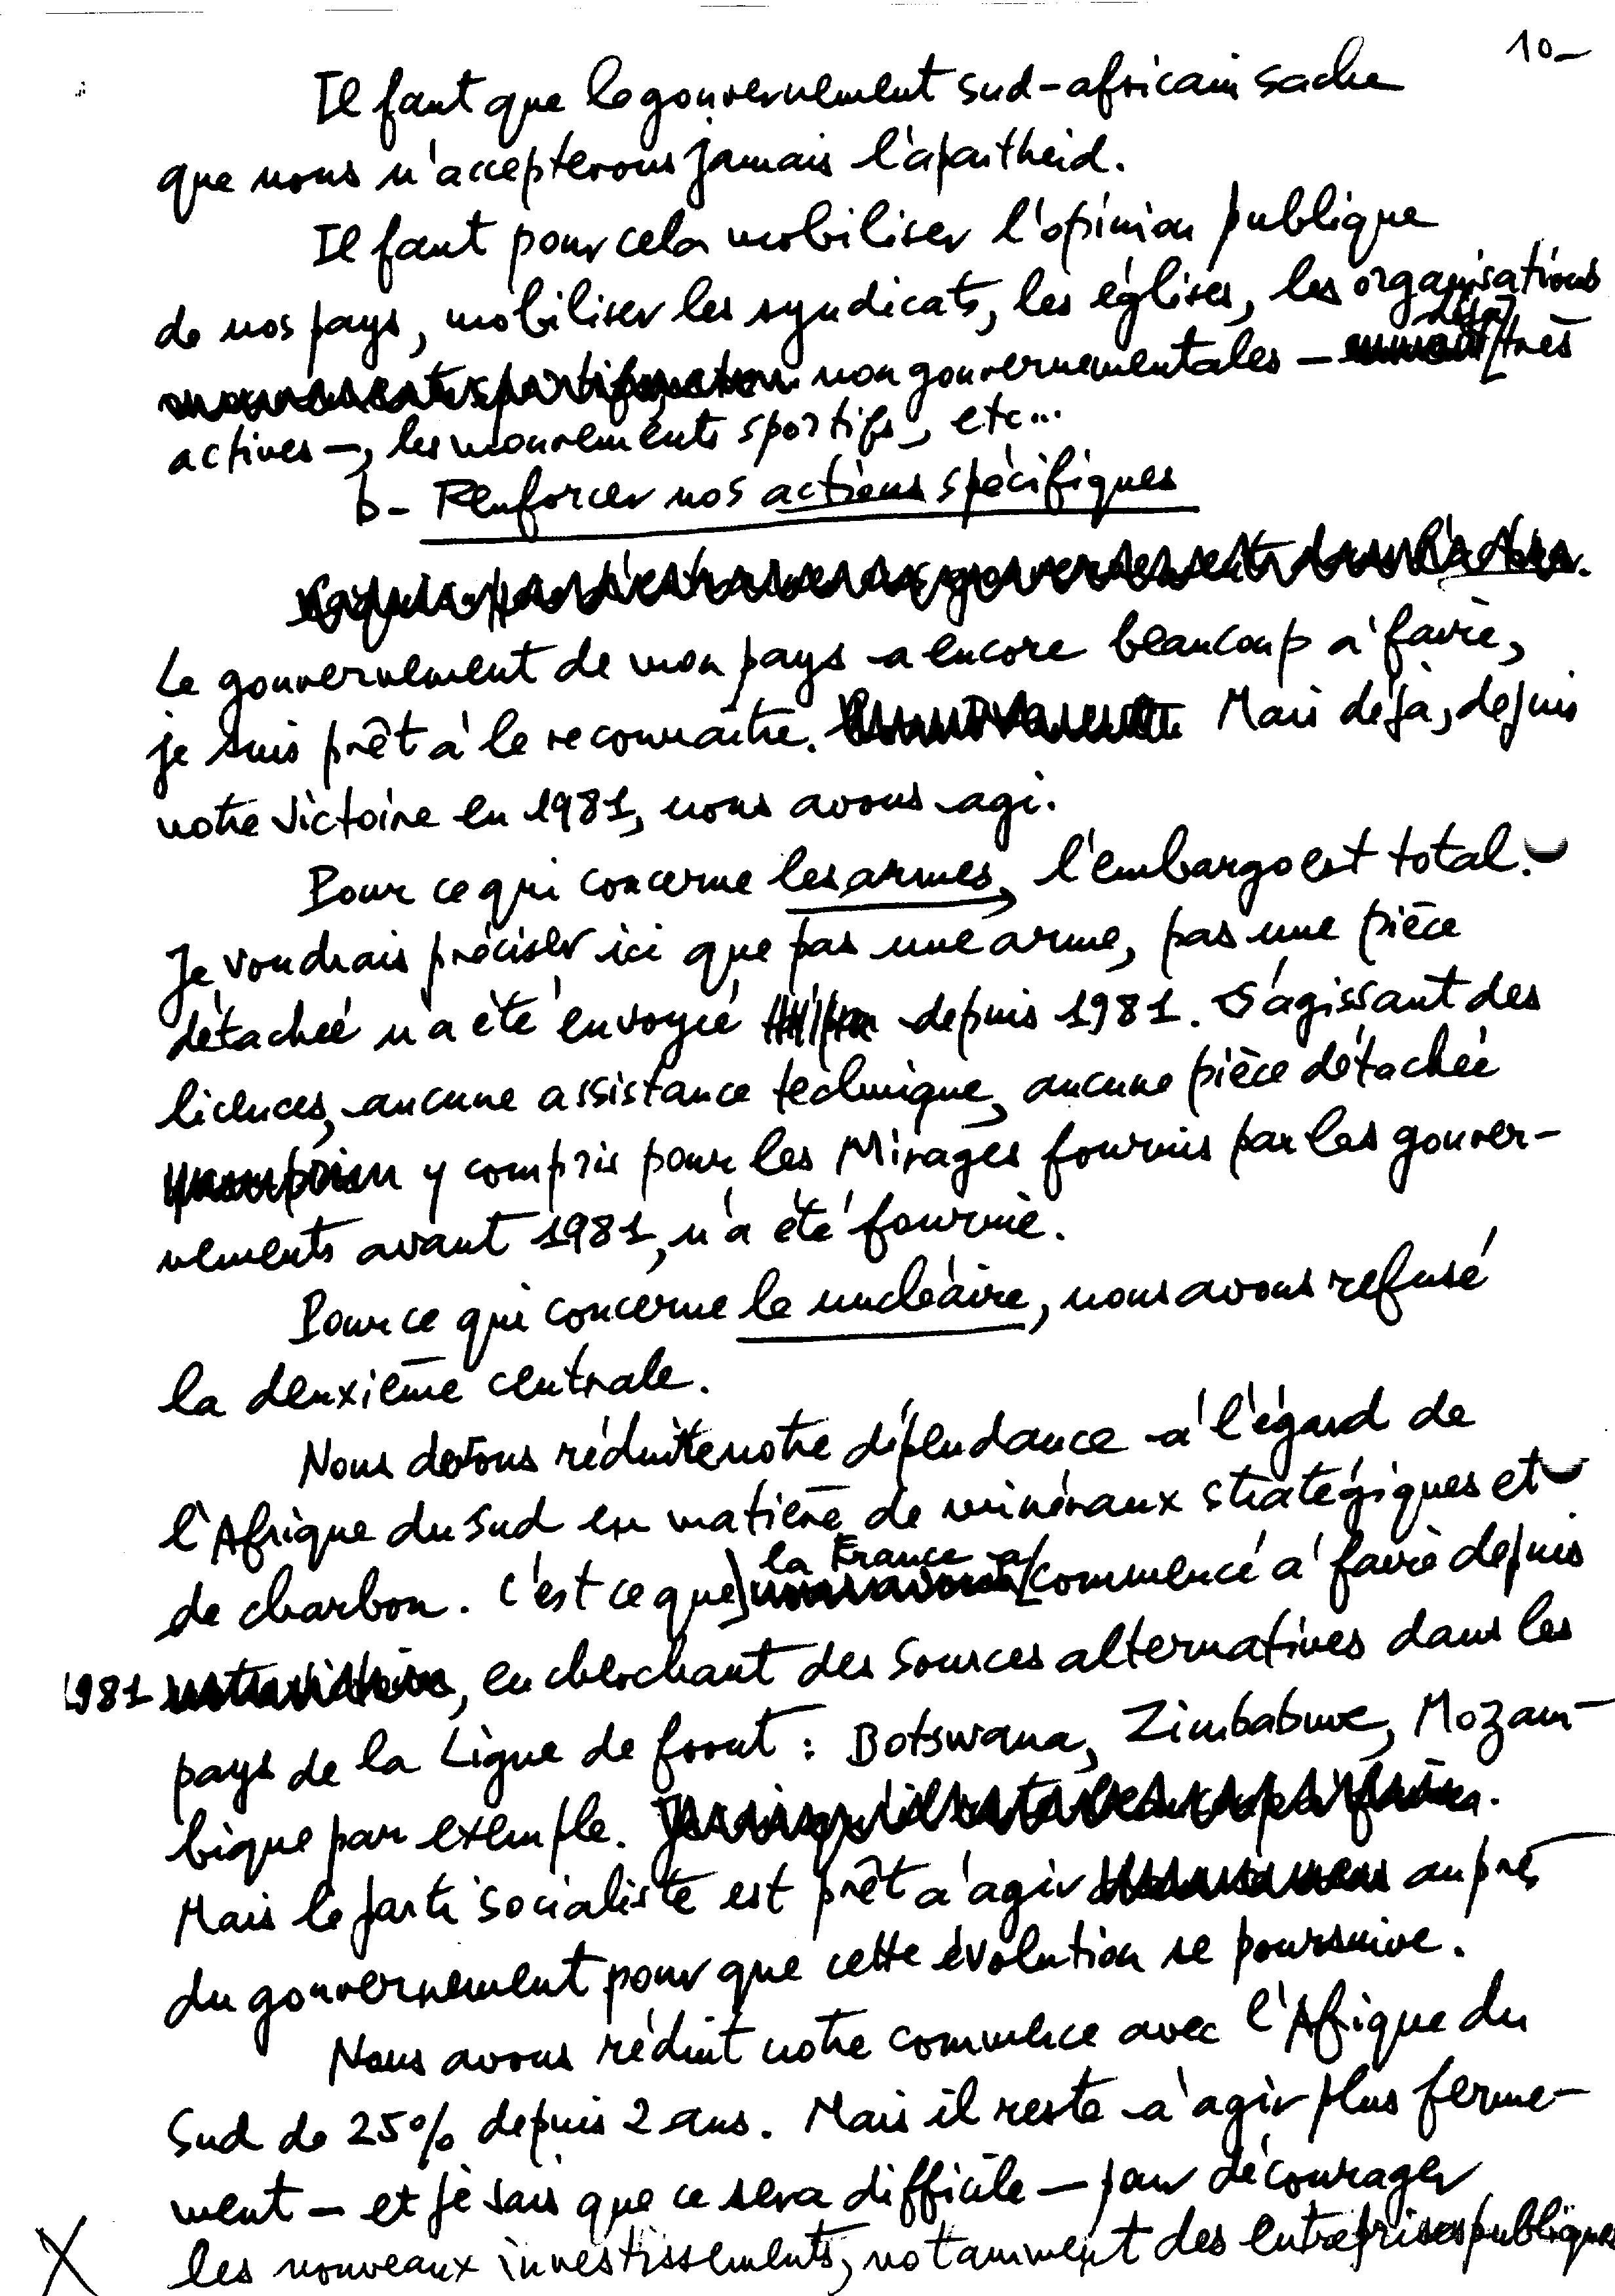 10-
Il faut que le gouvernement sud-africain sache
que nous n'accepterons jamais l'apartheid.
Il faut pour cela mobiliser l'opinion publique
de nos pays, mobiliser les syndicats, les églises, les organisations
déjà
non gouvernementales - très
actives -, les mouvements sportifs, etc...
b- Renforcer nos actions spécifiques
Le gouvernement de mon pays a encore beaucoup à faire,
je suis prêt à le reconnaître. Mais déjà, depuis
notre victoire en 1981, nous avons agi.
Pour ce qui concerne les armes, l'embargo est total.
Je voudrais préciser ici que pas une arme, pas une pièce
détachée n'a été envoyée depuis 1981. S'agissant des
licences, aucune assistance technique, aucune pièce détachée
y compris pour les Mirages fournis par les gouver-
nements avant 1981, n'a été fournie.
Pour ce qui concerne le nucléaire, nous avons refusé
la deuxième centrale.
Nous devons réduire notre dépendance à l'égard de
l'Afrique du Sud en matière de minéraux stratégiques et
la France a
de charbon. C'est ce que commencé à faire depuis
1981, en cherchant des sources alternatives dans les
pays de la Ligne de front : Botswana, Zimbabwe, Mozam-
bique par exemple.
Mais le parti socialiste est prêt à agir auprès
du gouvernement pour que cette évolution se poursuive.
Nous avons réduit notre commerce avec l'Afrique du
Sud de 25% depuis 2 ans. Mais il reste à agir plus ferme-
ment - et je sais que ce sera difficile - pour décourager
X les nouveaux investissements, notamment des entreprises publiques